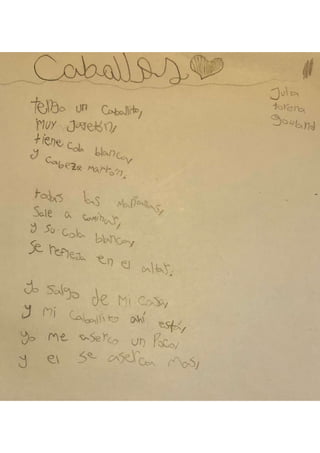 Caballos
Julia
Lorena
Gouland
tengo un Caballito,
muy jugetón,
tiene cola blanca,
y cabeza marrón.
todas las mañanas,
sale a caminar,
y su cola blanca,
se refleja en el altar.
yo salgo de mi casa,
y mi caballito ahí está,
yo me aserco un poco,
y el se aserca mas,